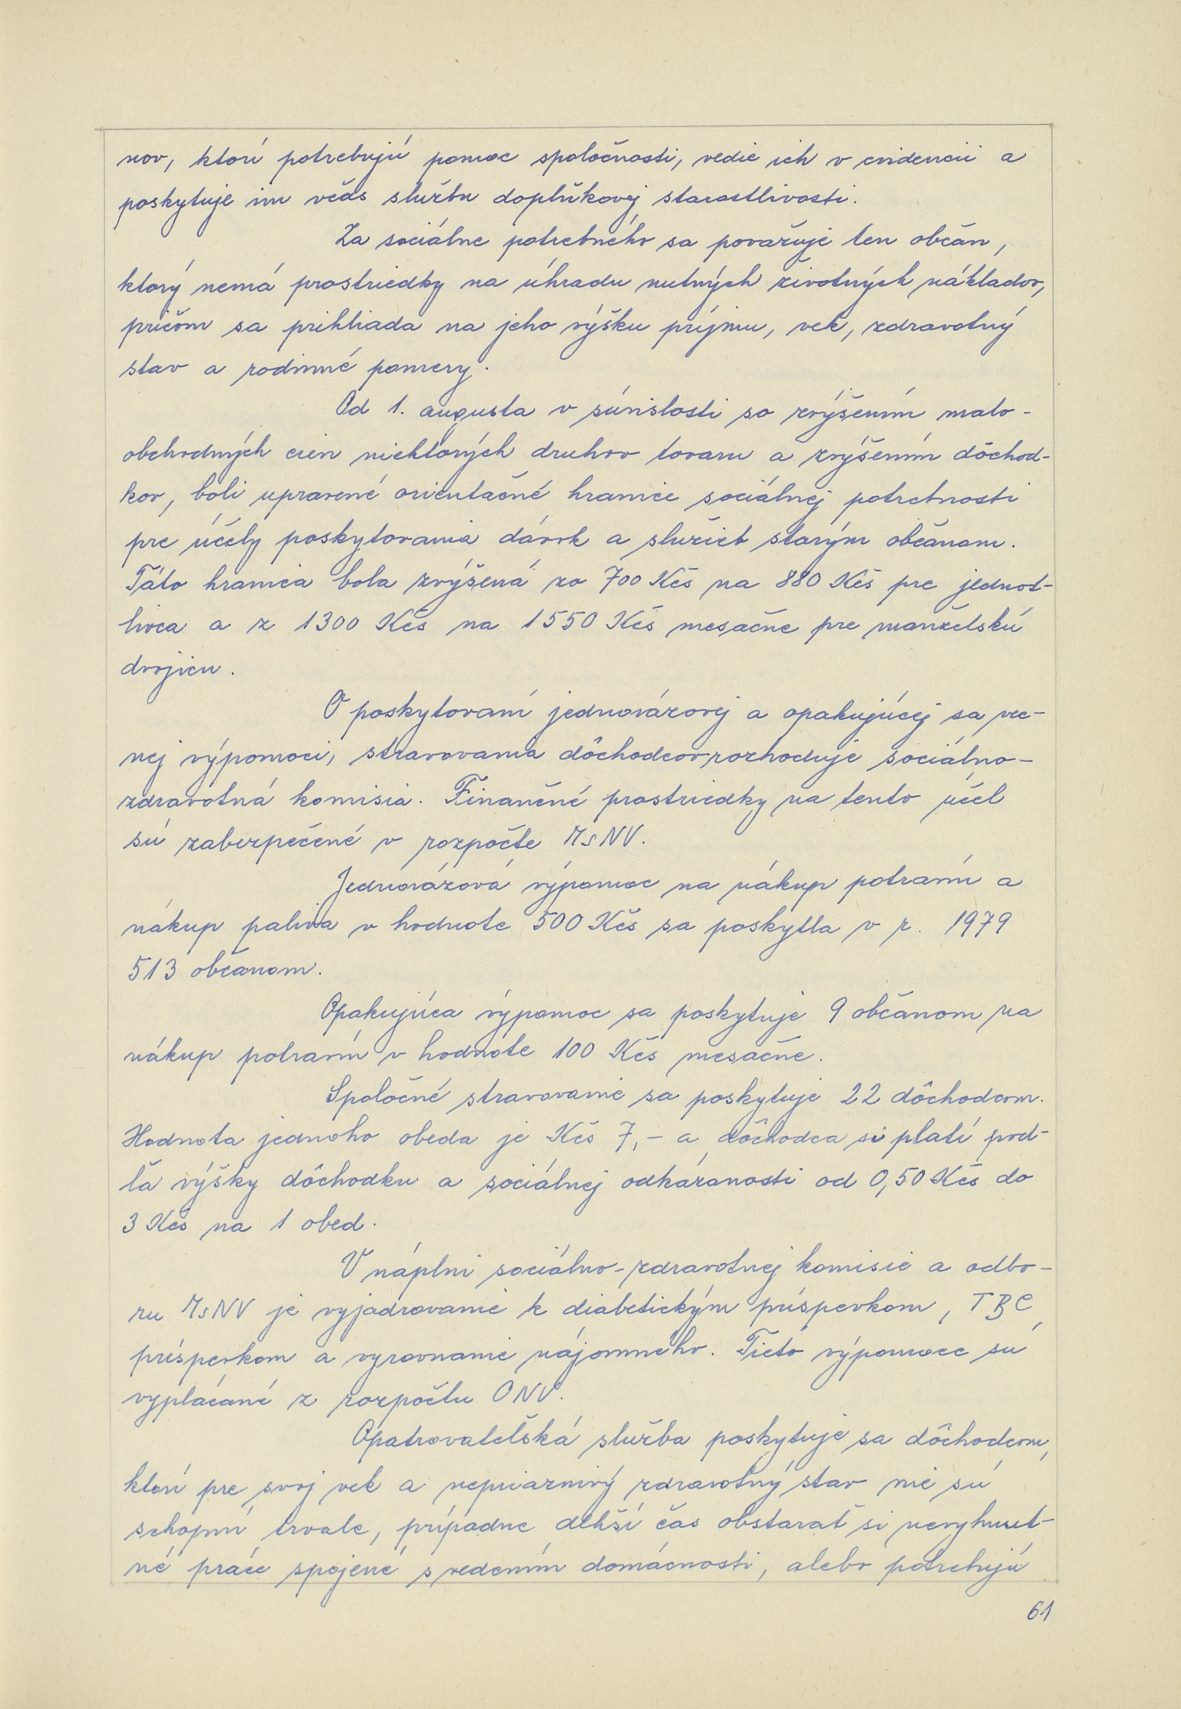 nov, ktorí potrebujú pomoc spoločnosti, vedie ich v evidencii a
poskytuje im včas službu doplňkovej starostlivosti.
Za sociálne potrebného sa považuje ten občan,
ktorý nemá prostriedky na úhradu nutných životných nákladov,
pričom sa prihliada na jeho výšku príjmu, vek, zdravotný
stav a rodinné pomery.
Od 1. augusta v súvislosti so zvýšením malo-
obchodných cien niektorých druhov tovaru a zvýšením dôchod-
kov, boli upravené orientačné hranice sociálnej potrebnosti
pre účely poskytovania dávok a služieb starým občanom.
Táto hranica bola zvýšená zo 700 Kčs na 880 Kčs pre jednot-
livca a z 1300 Kčs na 1550 Kčs mesačne pre manželskú
dvojicu.
O poskytovaní jednorázovej a opakujúcej sa vec-
nej výpomoci, stravovania dôchodcov rozhoduje sociálno-
zdravotná komisia. Finančné prostriedky na tento účel
sú zabezpečené v rozpočte MsNV.
Jednorázová výpomoc na nákup potravín a
nákup paliva v hodnote 500 Kčs sa poskytla v r. 1979
513 občanom.
Opakujúca výpomoc sa poskytuje 9 občanom na
nákup potravín v hodnote 100 Kčs mesačne.
Spoločné stravovanie sa poskytuje 22 dôchodcom.
Hodnota jedného obeda je Kčs 7,- a dôchodca si platí pod-
ľa výšky dôchodku a sociálnej odkázanosti od 0,50 Kčs do
3 Kčs na 1 obed.
V náplni sociálno-zdravotnej komisie a odbo-
ru MsNV je vyjadrovanie k diabetickým príspevkom, TBC
príspevkom a vyrovnanie nájomného. Tieto výpomoce sú
vyplácané z rozpočtu ONV.
Opatrovateľská služba poskytuje sa dôchodcom,
ktorí pre svoj vek a nepriaznivý zdravotný stav nie sú
schopní trvale, prípadne dlhší čas obstarať si nevyhnut-
né práce spojené s vedením domácnosti, alebo potrebujú
61